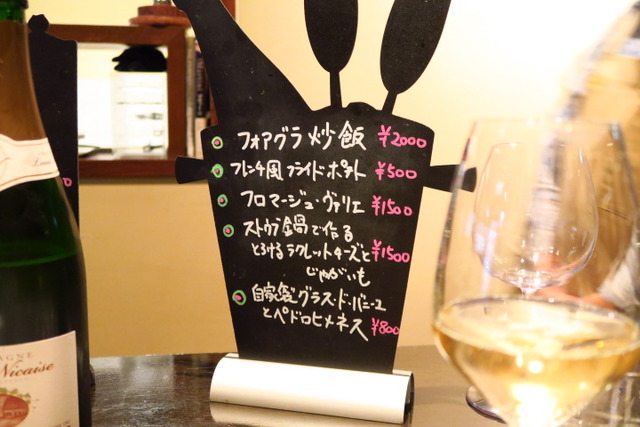 フォアグラ炒飯 ¥2000
フレンチ風フライドポテト ¥500
フロマージュ・ヴァリエ ¥1500
ストウブ鍋で作る
とろけるラクレットチーズと ¥1500
じゃがいも
自家製グラス・ド・バニーユ
とペドロヒメネス ¥800
Nicaise